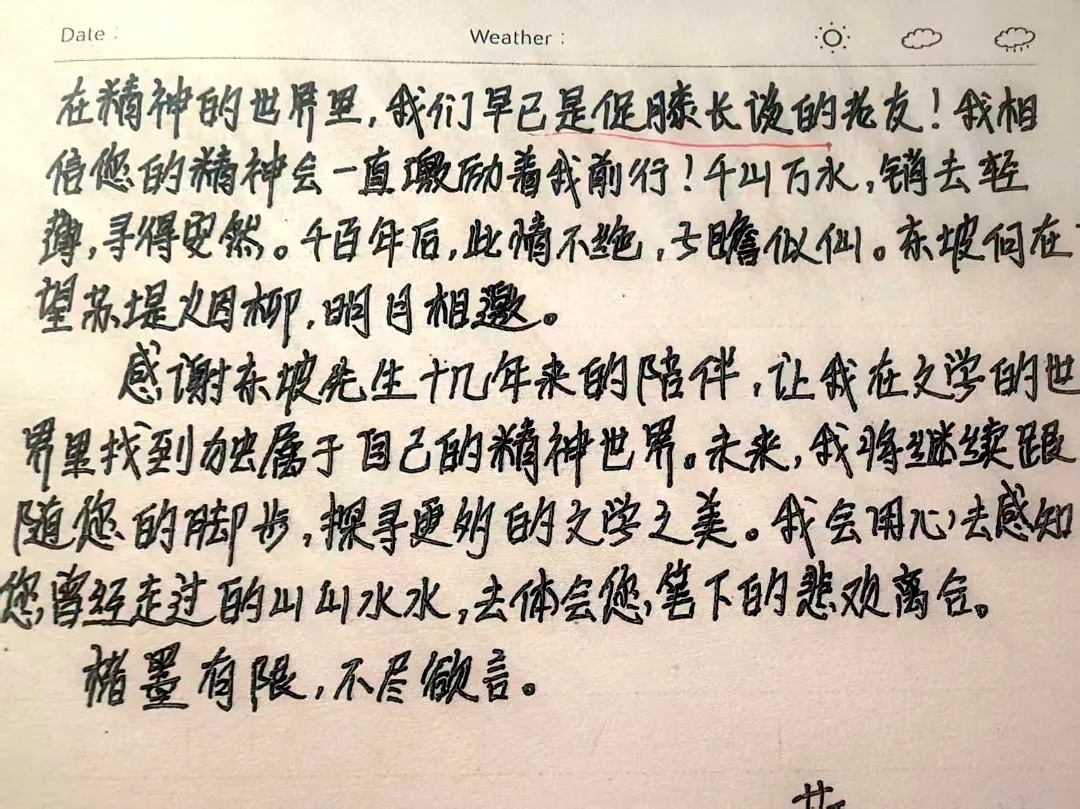 Date : Weather :
在精神的世界里，我们早已是促膝长谈的老友！我相
信您的精神会一直激励着我前行！千山万水，销去轻
薄，寻得安然。千百年后，此情不绝，子瞻似仙。东坡何在
望苏堤烟柳，明月相邀。
感谢东坡先生十几年来的陪伴，让我在文学的世
界里找到独属于自己的精神世界。未来，我将继续跟
随您的脚步，探寻更多的文学之美。我会用心去感知
您曾经走过的山山水水，去体会您笔下的悲欢离合。
楮墨有限，不尽欲言。